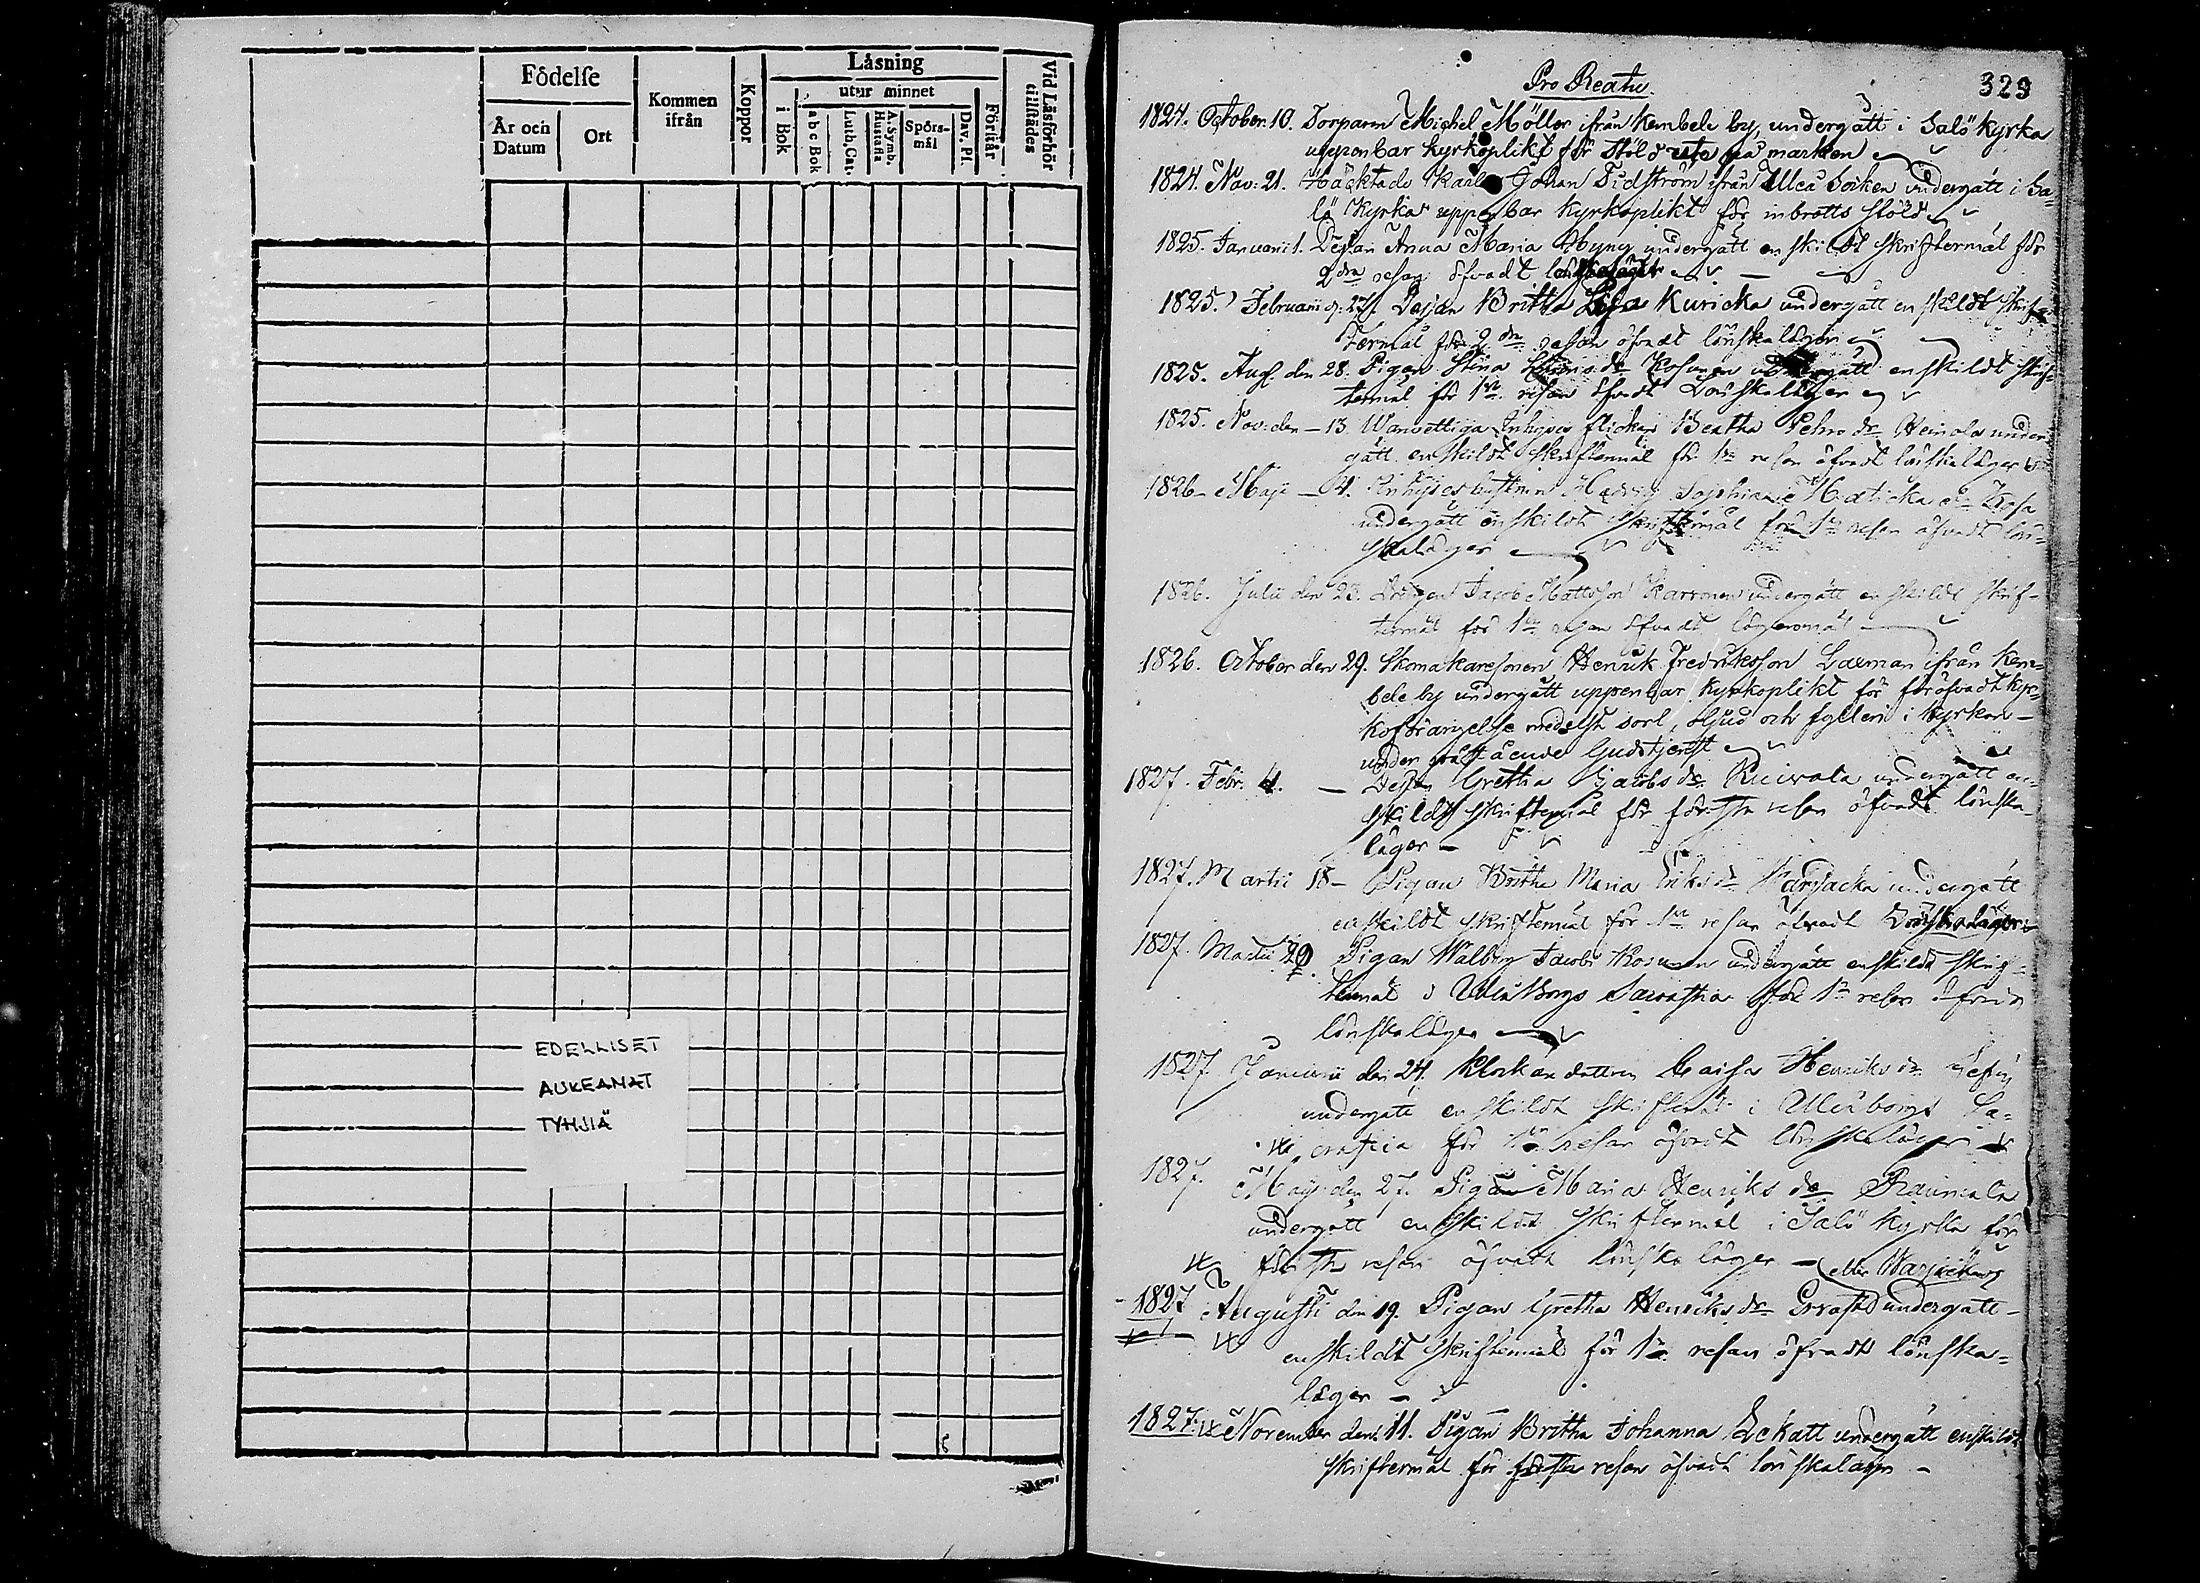 Födelse
År och Datum
Ort
Kommen ifrån
Koppor
Läsning
utur minnet
i Bok
a b c Bok
Luth. Cat.
A. Symb. Hustafla
Spörsmål
Dav. Ps.
Förstår
Vid Läsförhör tillstädes
EDELLISET
AUKEAMAT
TYHJIÄ
329
Pro Reatu.
1824. October. 10. Torparen Michel Möller ifrån Kembele by, undergått i Salö Kyrka
uppenbar kyrkoplikt för stöld ute på marken
1824. Nov: 21. Häcktade Karlen Johan Tidström ifrån Uleå Socken undergått i Sa=
lö Kyrka uppenbar Kyrkoplikt för inbrotts stöld
1825. Januarii 1. Dejan Anna Maria Hyny undergått enskildt skriftermål för
2dra resan öfvadt lönskaläger
1825. Februarii d: 27. Dejan Britha Lisa Kuricka undergått enskildt skrif=
termål för 2dra resan öfvadt lönskaläger
1825. Aug. den 28. Pigan Stina dr Kosunen undergått enskildt skrif=
termål för 1sta resan öfvadt Lönskaläger
1825. Nov: den 13. Wanvettiga Inhyses flickan Beatha Pehrs dr Heinola under=
gått enskildt skriftermål för 1sta resan öfvadt lönskaläger
1826 Maji 4. Inhyses Hedvig Sophia Maticka
undergått enskildt skriftermål för 1sta resan öfvadt lön=
skaläger
1826. Julii den 23. Drängen Jacob Mattsson Karvonen undergått enskildt skrif=
termål för 1sta resan öfvadt lägersmål
1826. October den 29. Skomakaresonen Henrik Fredriksson Laxman ifrån Kem=
bele by undergått uppenbar kyrkoplikt för föröfvadt kyr=
koförargelse medelst sorl, ljud och fylleri i kyrkan
under påstående Gudstjenst
1827. Febr. 4. Dejan Gretha Jacobs dr undergått en=
skildt skriftermål för första resan öfvadt lönska=
läger
1827. Martii 18 Pigan Britha Maria Eriks dr undergått
enskildt skriftermål för 1sta resan öfvadt Lönskaläger
1827. Martii 29. Pigan Walborg Jacobs Kosunen undergått enskildt skrif=
termål i Uleåborgs Sacristia för 1sta resan öfvadt
lönskaläger
1827 Januarii den 24. Klockaredottren Caisa Henriks dr
undergått enskildt skriftermål i Uleåborgs Sa=
cristia för 1sta resan öfvadt lönskaläger
1827. Maji den 27. Pigan Maria Henriks dr
undergått enskildt skriftermål i Salö kyrka för
första resan öfvadt lönska läger eller
1827 Augusti den 19. Pigan Gretha Henriks dr undergått
enskildt skriftermål för 1sta resan öfvadt lönska=
läger
1827. November den 11. Pigan Britha Johanna Eckatt undergått enskildt
skriftermål för första resan öfvadt lönskaläger